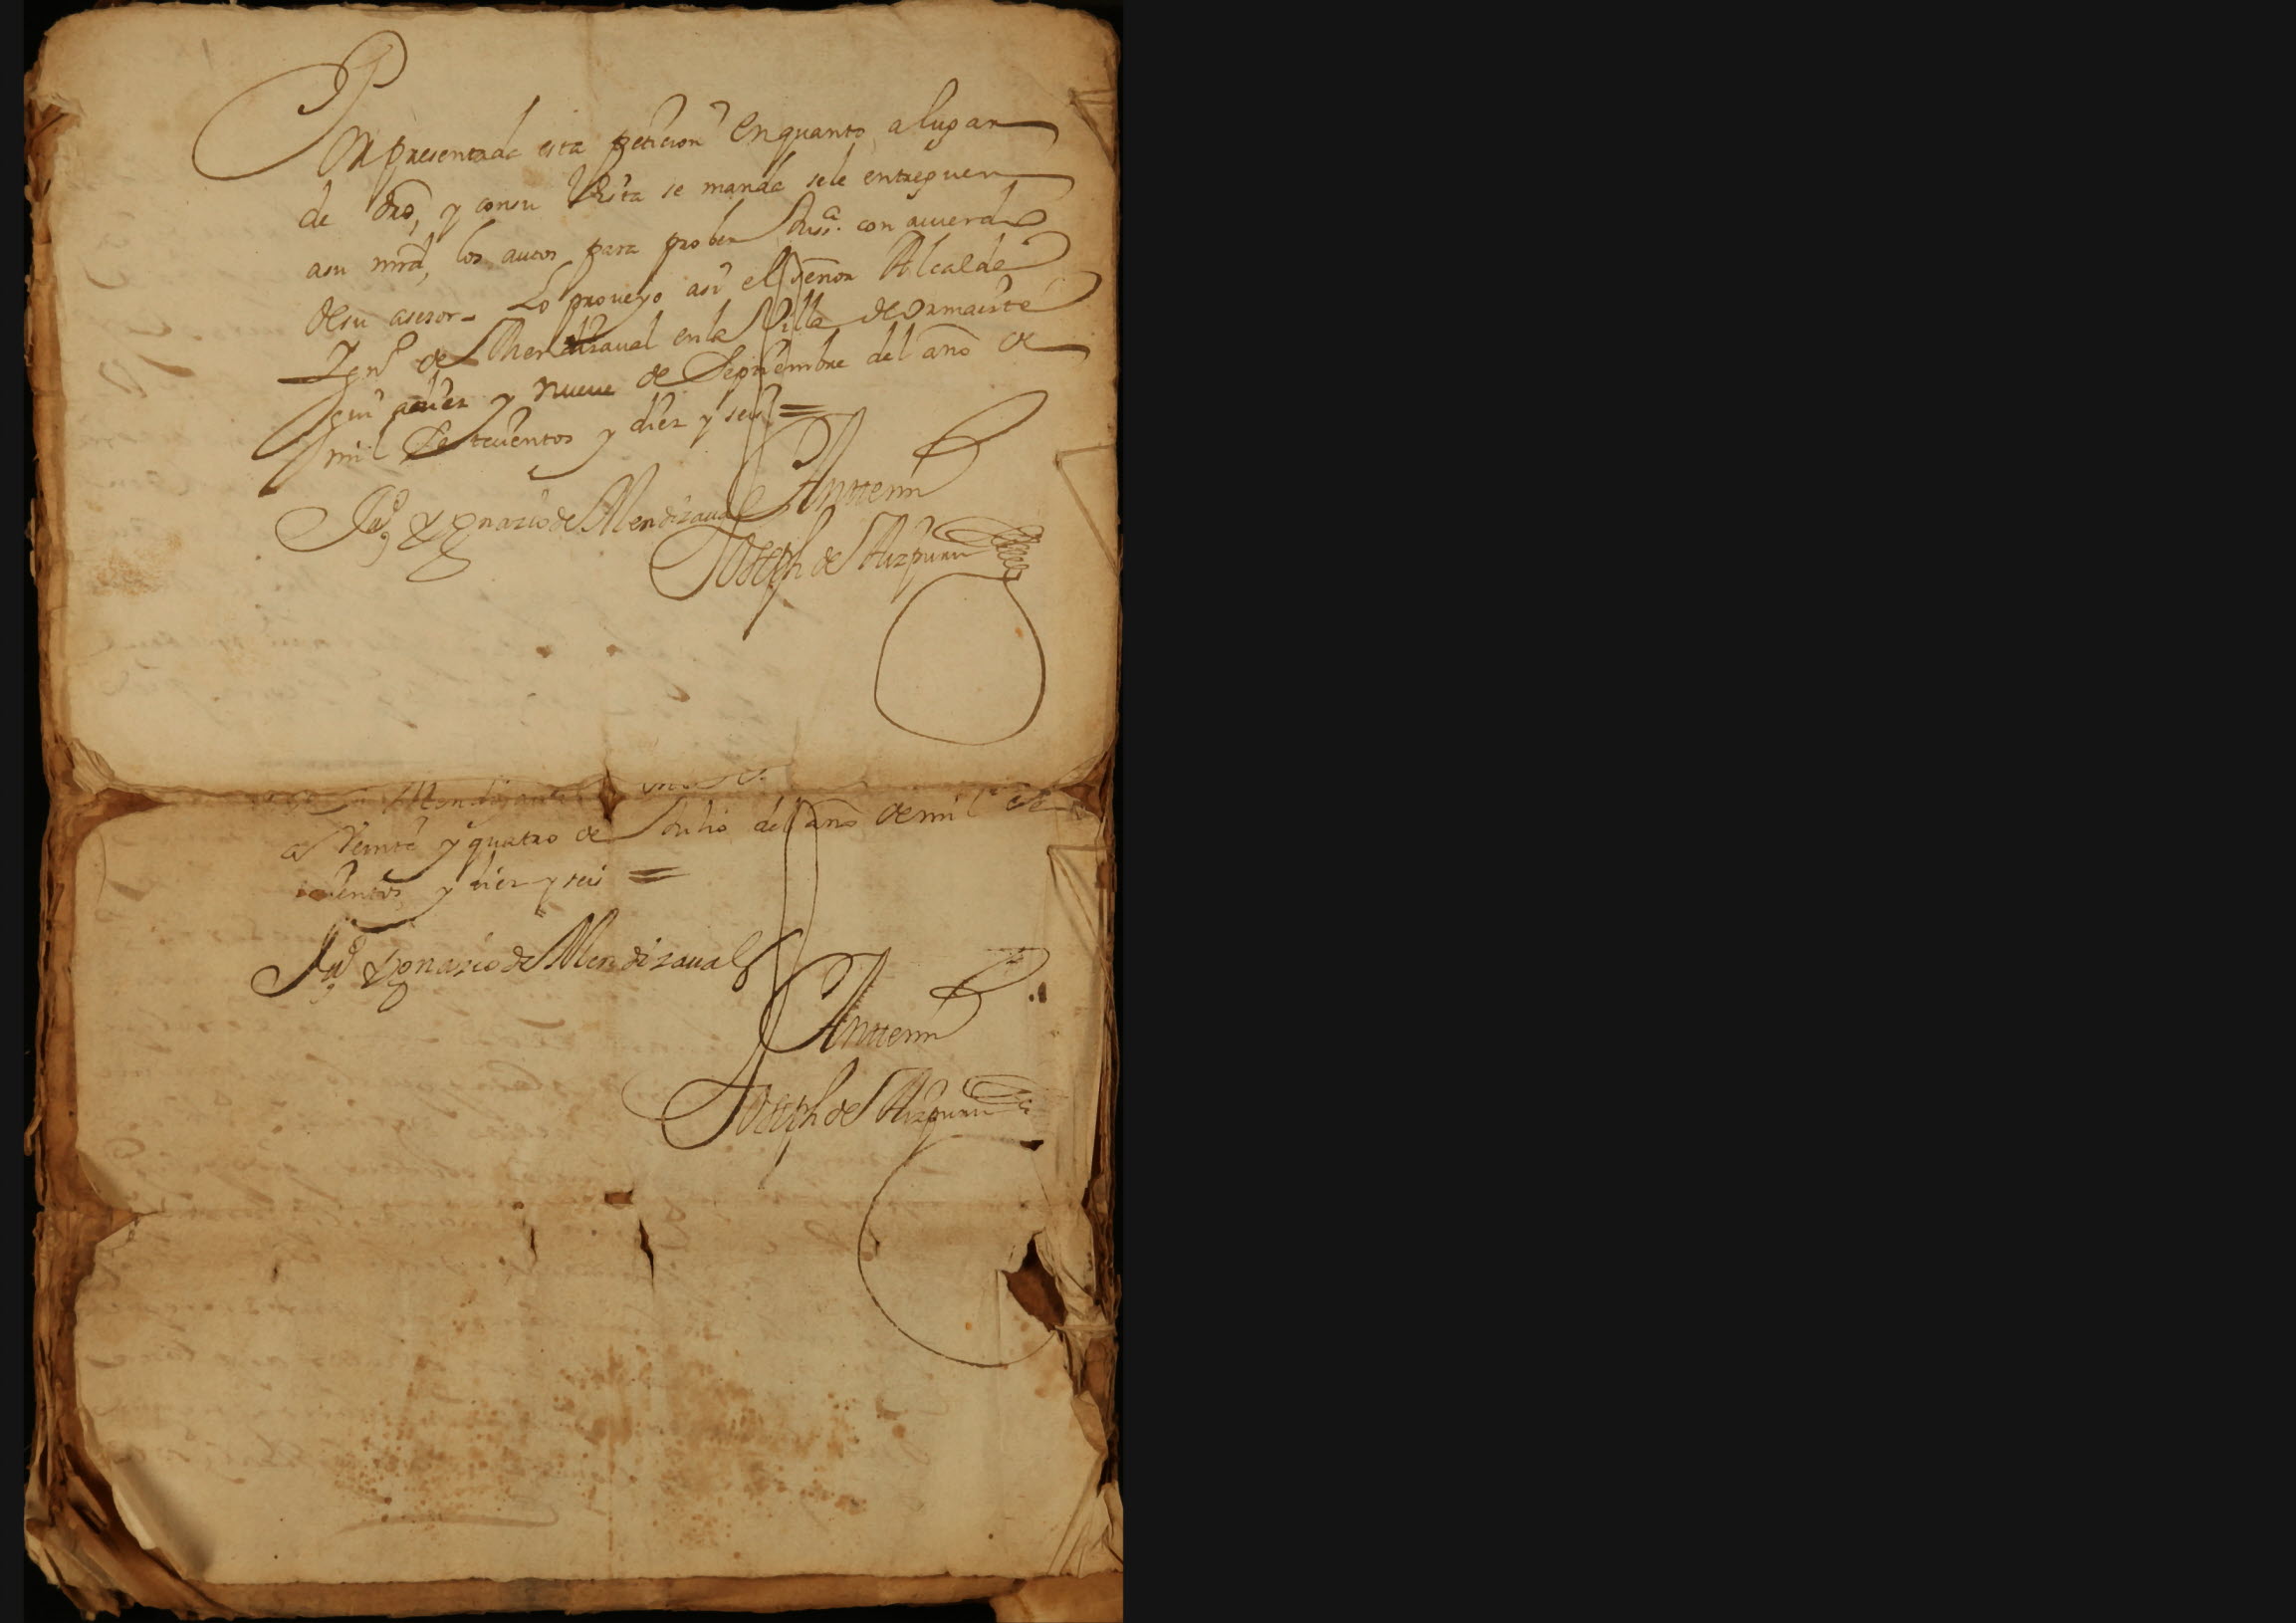 Por presentada esta peticion enquanto a lugar
de dro, y consu Vista se manda sele entreguen
asu mrd, los autos para prober Juss.a con acuerdo
desu asesor - Lo proveyo asi el señor Alcalde
Ygn.o de Mendizaual en la Villa de ormaizte
gui adiez y nueve de Septiembre del año de
mil Setecientos y diez y seis =
Ju.o Ygnazio de Mendizaual
Anttemi
Joseph de Aizpuru
Mendizaual
a Veinte y quatro de Julio del año de mil Sete
cientos y diez y seis =
Ju.o Ygnazio de Mendizaual
Anttemi
Joseph de Aizpuru